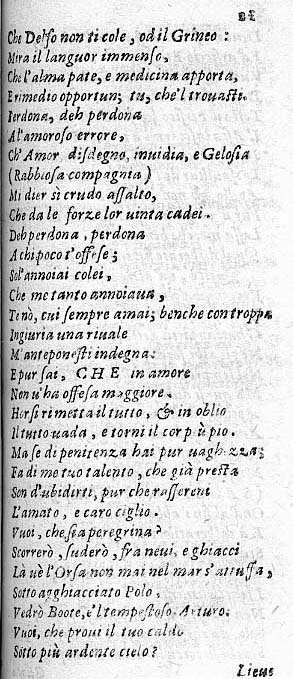 21
Che Delfo non ti cole, od il Grineo:
Mira il languor immenso,
Che l'alma pate, e medicina apporta,
E rimedio opportun; tu, che'l trouasti.
Perdona, deh perdona
Al'amoroso errore,
Ch'Amor, disdegno, inuidia, e Gelosia
(Rabbiosa compagnia)
Mi dier sì crudo assalto,
Che da le forze lor uinta cadei.
Deh perdona, perdona
A chi poco t'offese;
Sol'annoiai colei,
Che me tanto annoiaua,
Te nò, cui sempre amai; benche con troppa
Ingiuria una riuale
M'anteponesti indegna:
E pur sai, CHE in amore
Non u'ha offesa maggiore.
Hor si rimetta il tutto, & in oblio
Il tutto uada, e torni il cor più pio.
Ma se di penitenza hai pur uaghezza;
Fa di me tuo talento, che già presta
Son d'ubidirti, pur che rasseren
L'amato, e caro ciglio.
Vuoi, che sia peregrina?
Scorrerò, suderò, fra neui, e ghiacci
Là uè l'Orsa non mai nel mar s'attuffa,
Sotto agghiacciato Polo,
Vedrò Boote, e'l tempestoso Arturo.
Vuoi, che proui il tuo caldo
Sotto più ardente cielo?
Lieue